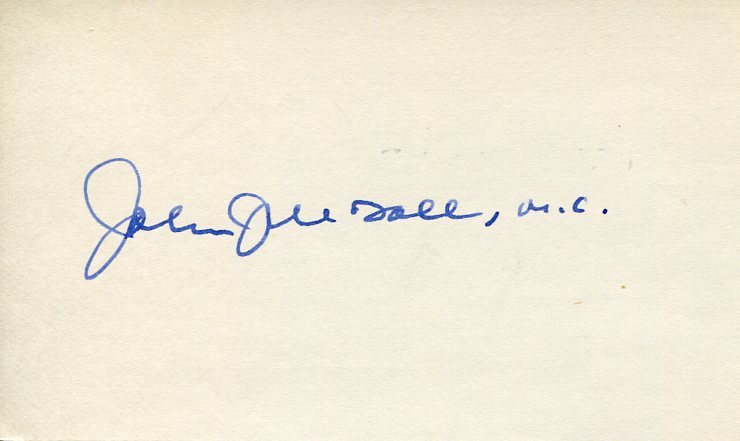 John J McFall, M.C.